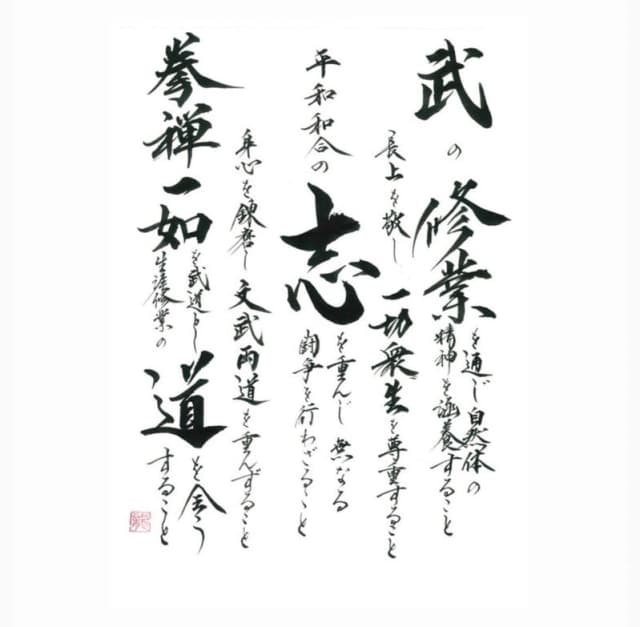 武の修業を通じ自然体の精神を涵養すること
長上を敬し一切衆生を尊重すること
平和和合の志を重んじ無なる闘争を行わざること
身心を錬磨し文武両道を重んずること
拳禅一如を武道とし生涯修業の道を全うすること